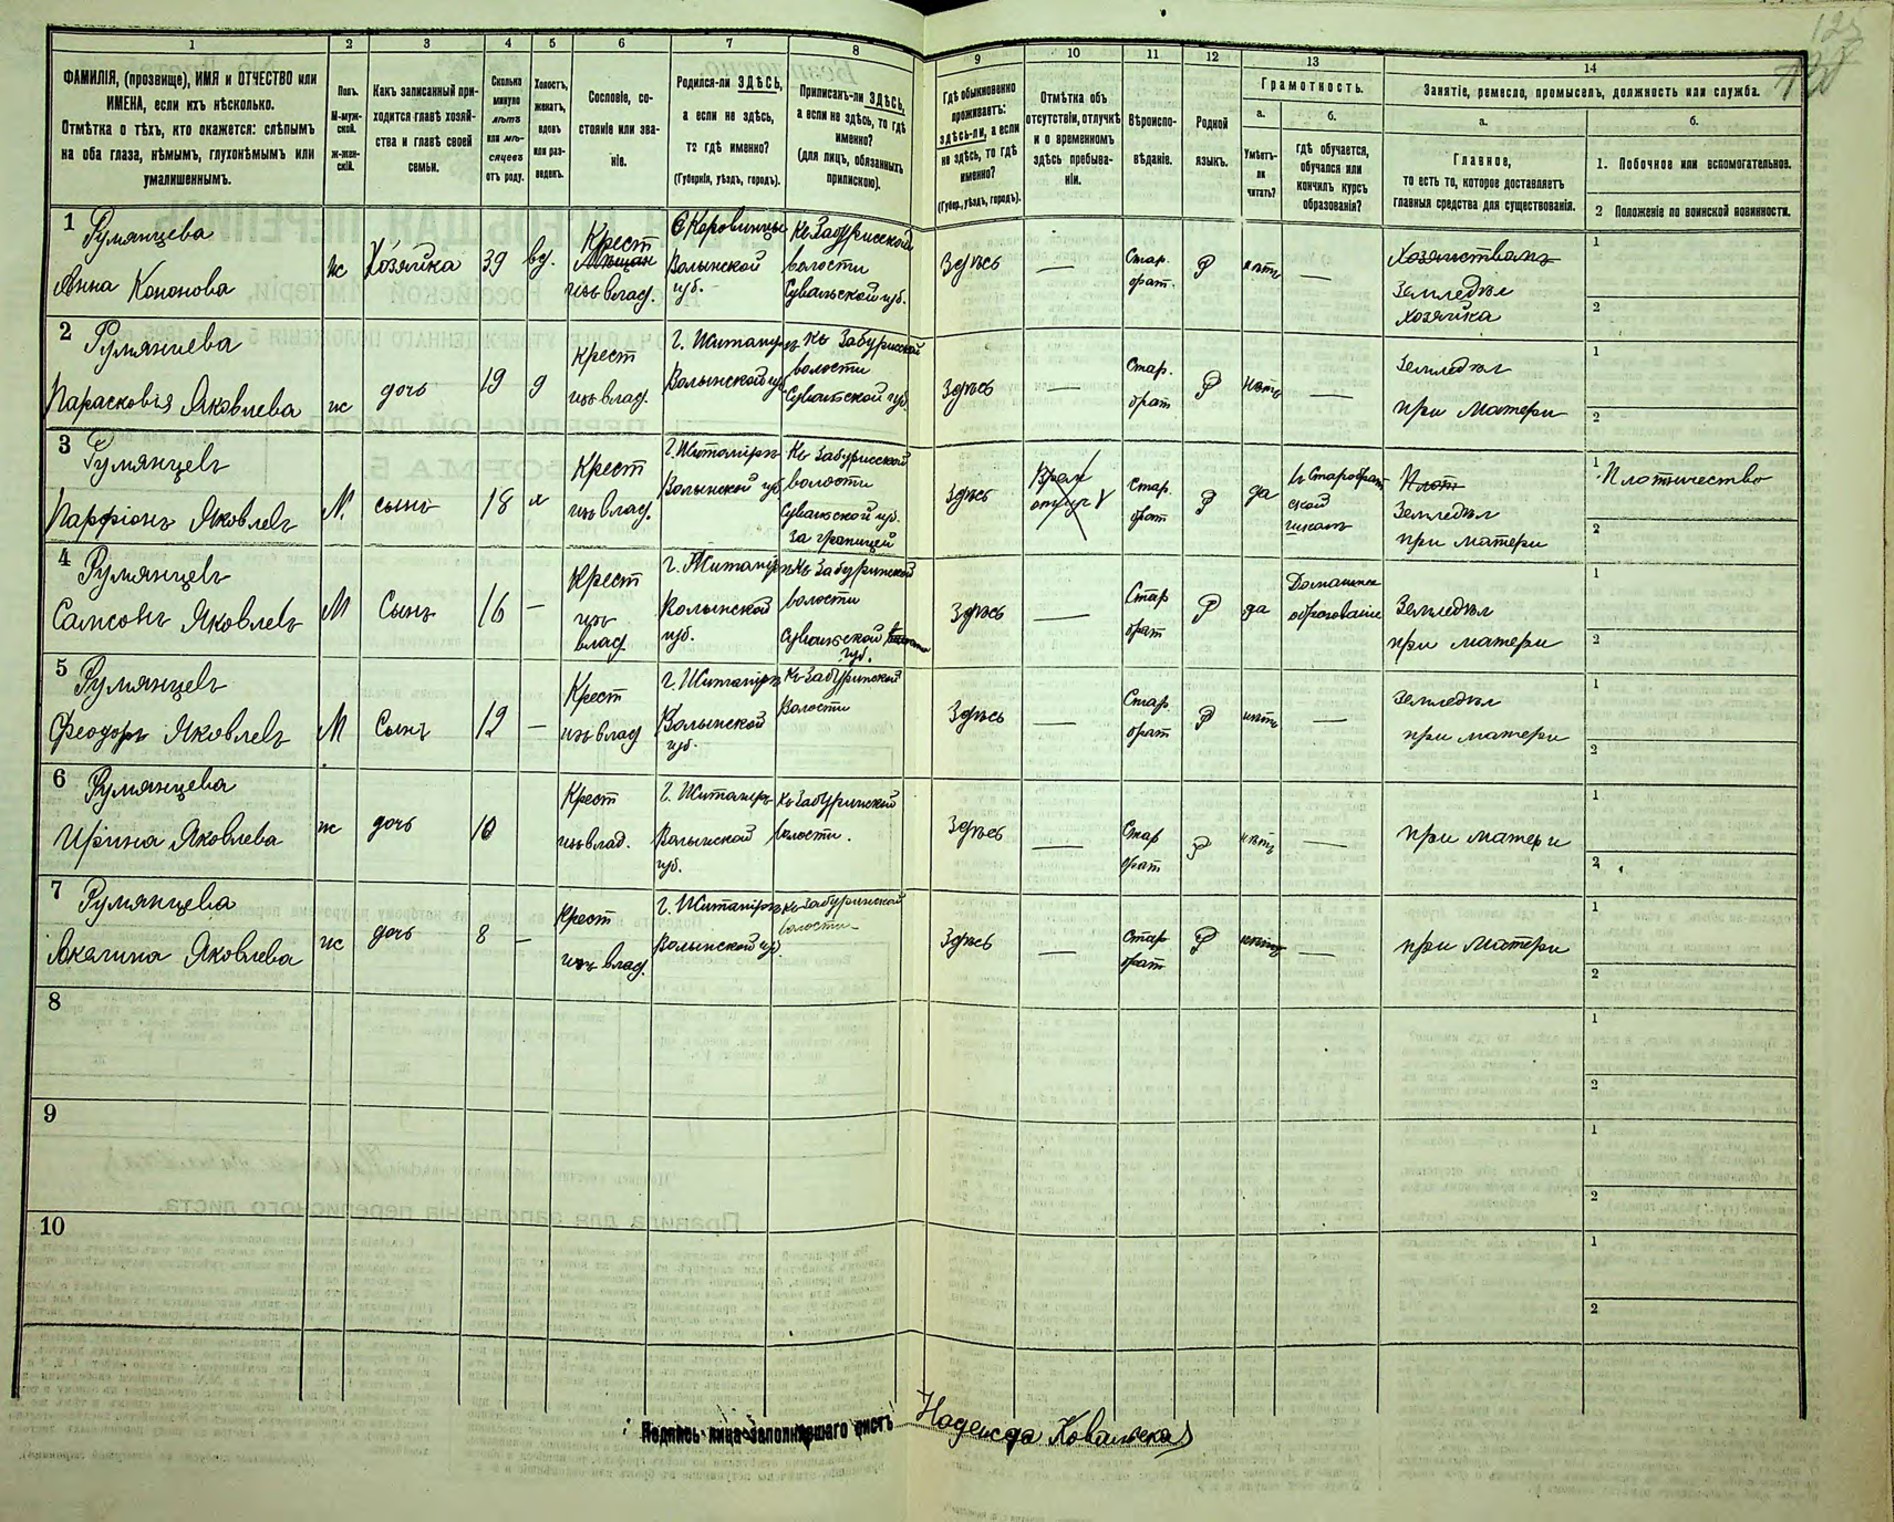 125
1 2 3 4 5 6 7 8 9 10 11 12 13 14
ФАМИЛІЯ, (прозвище), ИМЯ и ОТЧЕСТВО или
ИМЕНА, если ихъ нѣсколько.
Отмѣтка о тѣхъ, кто окажется: слѣпымъ
на оба глаза, нѣмымъ, глухонѣмымъ или
умалишеннымъ.
Полъ.
М-муж-
ской.
ж-жен-
скій.
Какъ записанный при-
ходится главѣ хозяй-
ства и главѣ своей
семьи.
Сколько
минуло
лѣтъ
или мѣ-
сяцевъ
отъ роду.
Холостъ,
женатъ,
вдовъ
или раз-
веденъ.
Сословіе, со-
стояніе или зва-
ніе.
Родился-ли ЗДѢСЬ,
а если не здѣсь,
то гдѣ именно?
(Губернія, уѣздъ, городъ).
Приписанъ-ли ЗДѢСЬ,
а если не здѣсь, то гдѣ
именно?
(для лицъ, обязанныхъ
припискою).
Гдѣ обыкновенно
проживаетъ:
здѣсь-ли, а если
не здѣсь, то гдѣ
именно?
(Губер., уѣздъ, городъ).
Отмѣтка объ
отсутствіи, отлучкѣ
и о временномъ
здѣсь пребыва-
ніи.
Вѣроиспо-
вѣданіе.
Родной
языкъ.
Грамотность.
а.
Умѣетъ-
ли
читать?
б.
гдѣ обучается,
обучался или
кончилъ курсъ
образованія?
Занятіе, ремесло, промыселъ, должность или служба.
а.
Главное,
то есть то, которое доставляетъ
главныя средства для существованія.
б.
1. Побочное или вспомогательное.
2 Положеніе по воинской повинности.
1 Румянцева
Анна Кононова
ж
Хозяйка
39
вд.
Крест
Мѣщан
изъ влад.
С Каровинцы
Волынской
губ.
Къ Забурисской
волости
Сувалкской губ.
Здѣсь
—
Стар.
обрат.
Р
нѣтъ
—
Хозяйствомъ
Земледѣл
хозяйка
1
2
2 Румянцева
Парасковія Яковлева
ж
дочь
19
д
Крест
изъ влад.
г. Житомиръ
Волынской губ
Къ Забурисской
волости
Сувалкской губ.
Здѣсь
—
Стар.
обрат
Р
нѣтъ
—
Земледѣл
при матери
1
2
3 Румянцевъ
Парфіонъ Яковлевъ
М.
сынъ
18
х
Крест
изъ влад.
г. Житоміръ
Волынской губ
Къ Забурисской
волости
Сувалкской губ.
за границей
Здѣсь
Стар.
обрат
Р
да
въ Старообрат
ской
школѣ
Плот
Земледѣл
при матери
1 Плотничество
2
4 Румянцевъ
Самсонъ Яковлевъ
М
Сынъ
16
—
Крест
изъ
влад.
г. Житоміръ
Волынской
губ.
Къ Забуринской
волости
Сувалкской
губ.
Здѣсь
—
Стар
обрат
Р
да
Домашнее
образованіе
Земледѣл
при матери
1
2
5 Румянцевъ
Феодоръ Яковлевъ
М
Сынъ
12
—
Крест
изъ влад
г. Житоміръ
Волынской
губ.
Къ Забуринской
Волости
Здѣсь
—
Стар.
обрат
Р
нѣтъ
—
Земледѣл
при матери
1
2
6 Румянцева
Ирина Яковлева
ж
дочь
10
Крест
изъ влад.
г. Житоміръ
Волынской
губ.
Къ Забуринской
волости.
Здѣсь
—
Стар
обрат
Р
нѣтъ
—
при матери
1
2
7 Румянцева
Акелина Яковлева
ж
дочь
8
—
Крест
изъ влад.
г. Житоміръ
Волынской губ.
Къ Забуринской
волости
Здѣсь
—
Стар
обрат
Р
нѣтъ
—
при матери
1
2
8
1
2
9
1
2
10
1
2
Подпись лица заполнявшаго листъ Надежда Ковальская